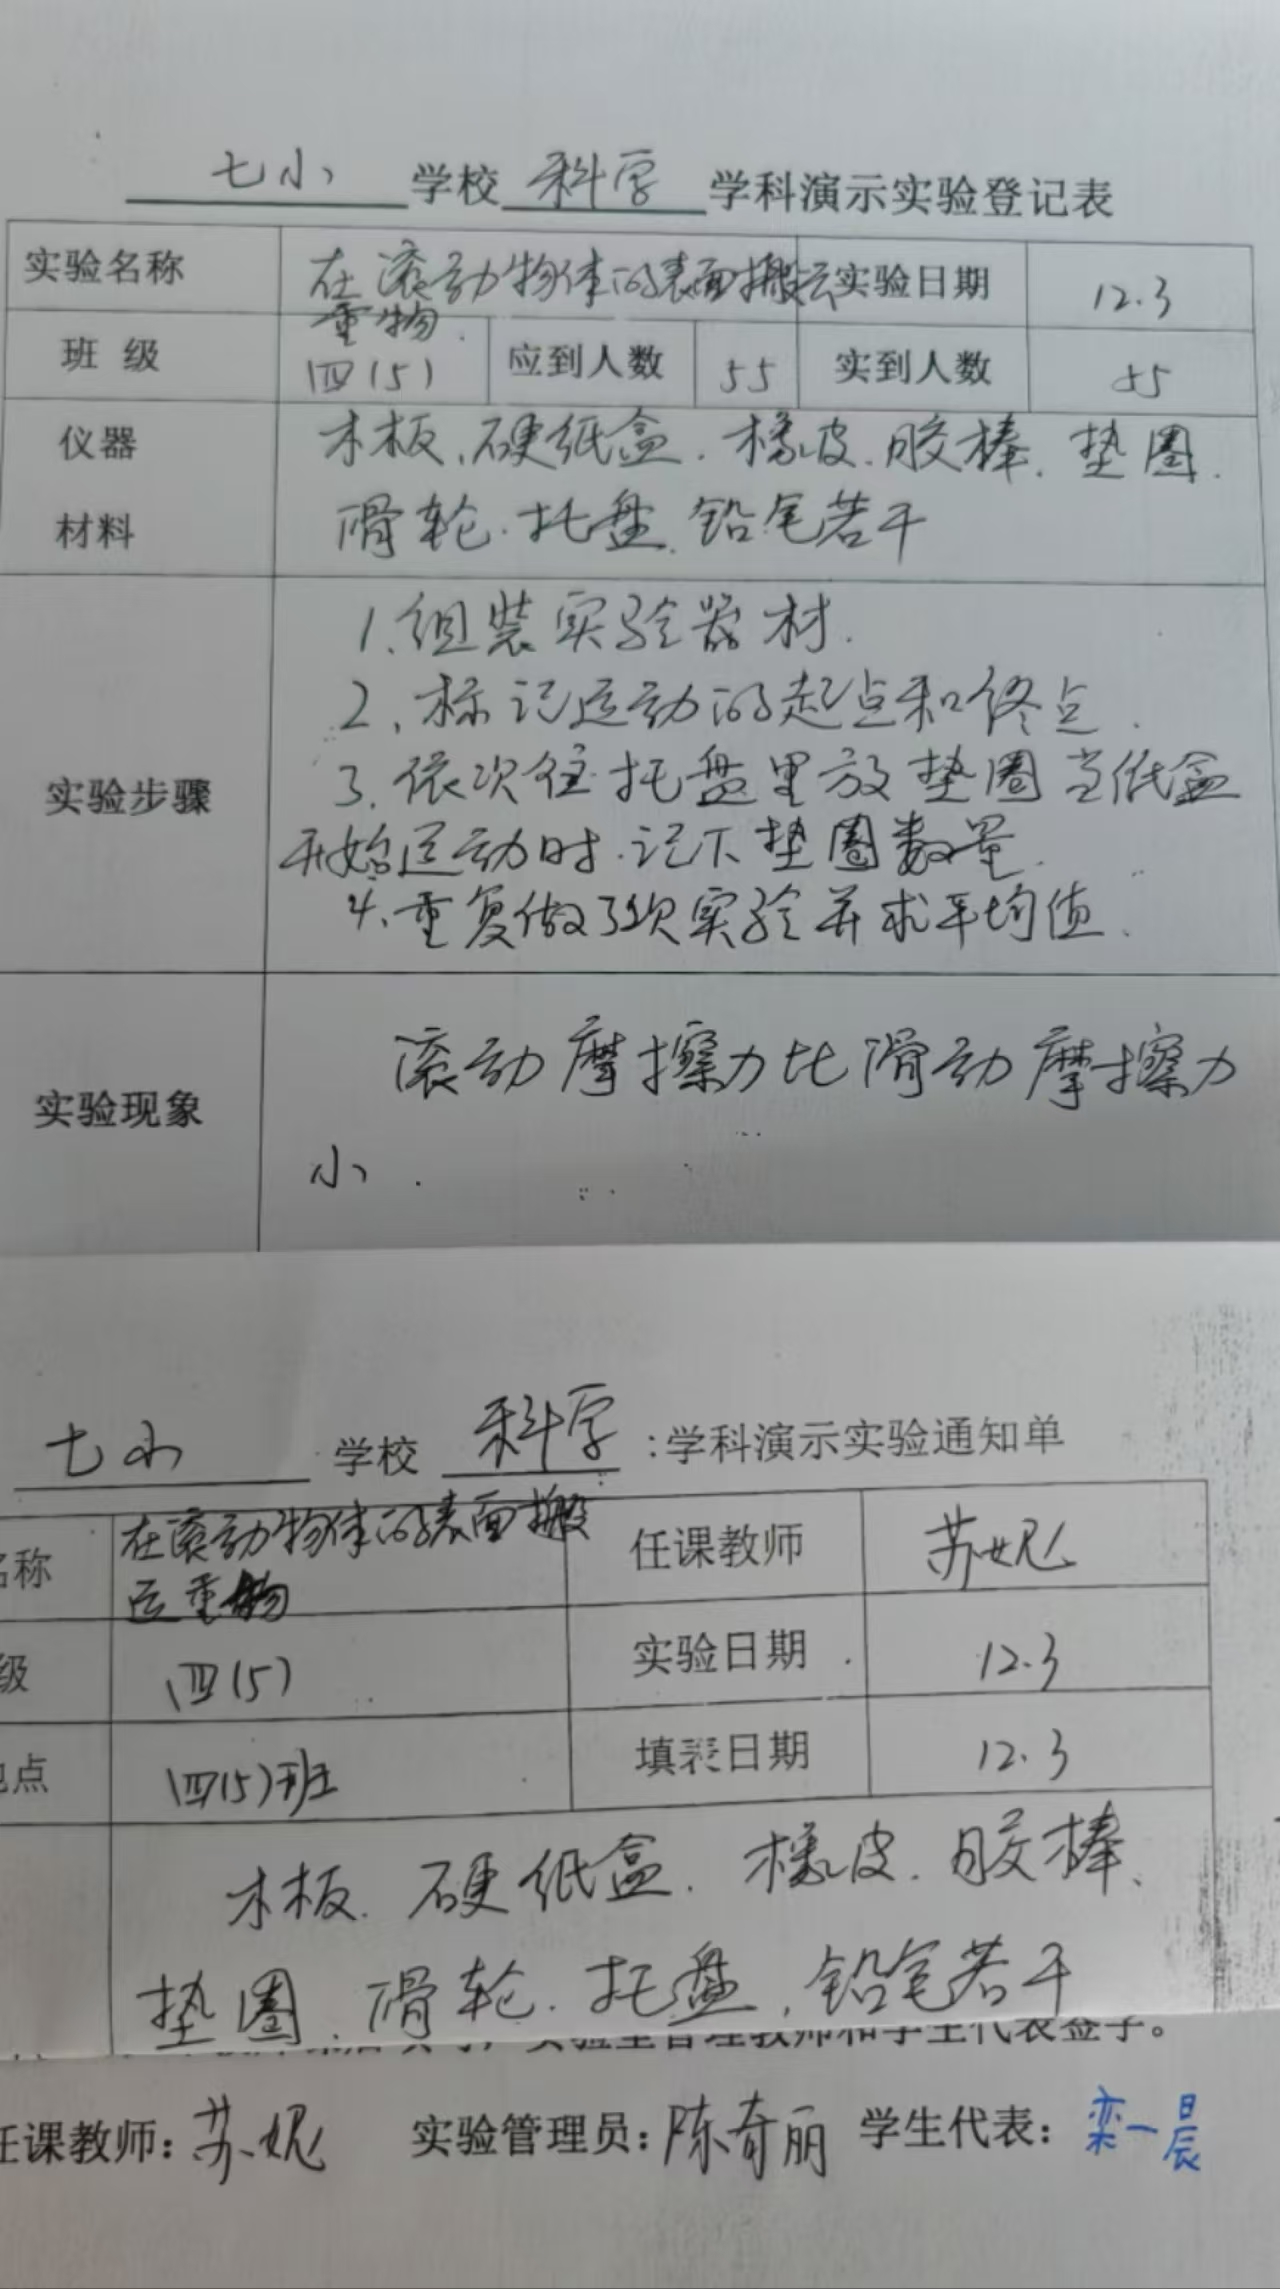 七小 学校 科学 学科演示实验登记表
实验名称 在滚动物体的表面搬运重物 实验日期 12.3
班 级 四(5) 应到人数 55 实到人数 55
仪器 木板、硬纸盒、橡皮、胶棒、垫圈、
材料 滑轮、托盘、铅笔若干
1、组装实验器材.
2、标记运动的起点和终点.
实验步骤 3、依次往托盘里放垫圈当纸盒
开始运动时.记下垫圈数量.
4、重复做3次实验并求平均值.
实验现象 滚动摩擦力比滑动摩擦力
小.
七小 学校 科学 :学科演示实验通知单
名称 在滚动物体的表面搬运重物 任课教师 苏妮
级 四(5) 实验日期 12.3
地点 四(5)班 填表日期 12.3
木板、硬纸盒、橡皮、胶棒、
垫圈、滑轮、托盘、铅笔若干
实验室管理教师和学生代表签字。
任课教师:苏妮 实验管理员:陈奇丽 学生代表:栾一晨